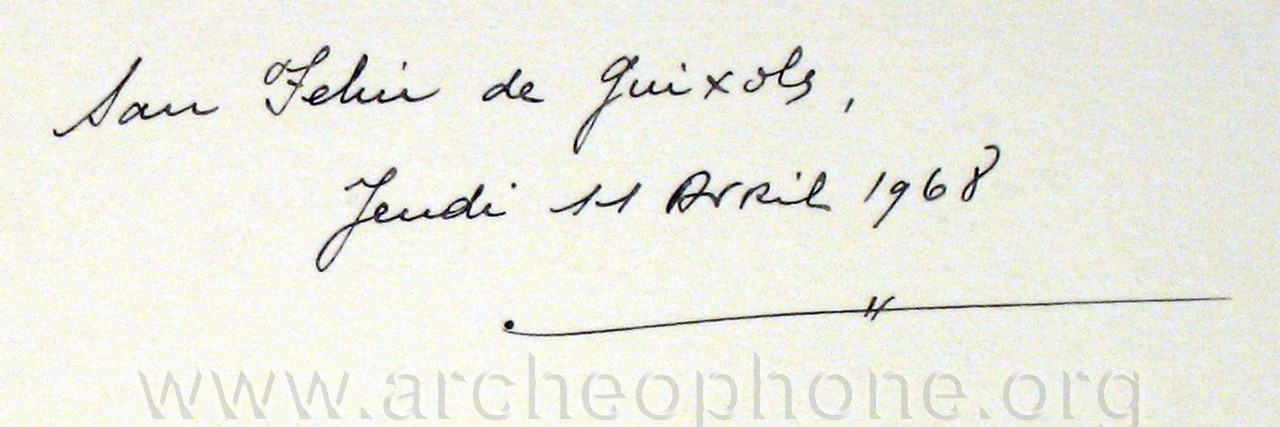 San Feliu de Guixols,
Jeudi 11 Avril 1968
www.archeophone.org